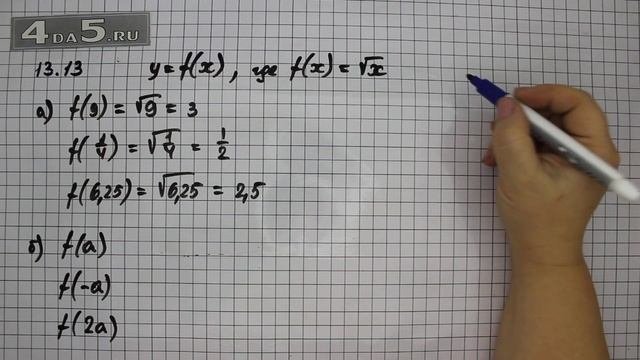 4DA5.RU
13.13 y = f(x), где f(x) = √x
а) f(9) = √9 = 3
f(1/4) = √1/4 = 1/2
f(6,25) = √6,25 = 2,5
б) f(a)
f(-a)
f(2a)